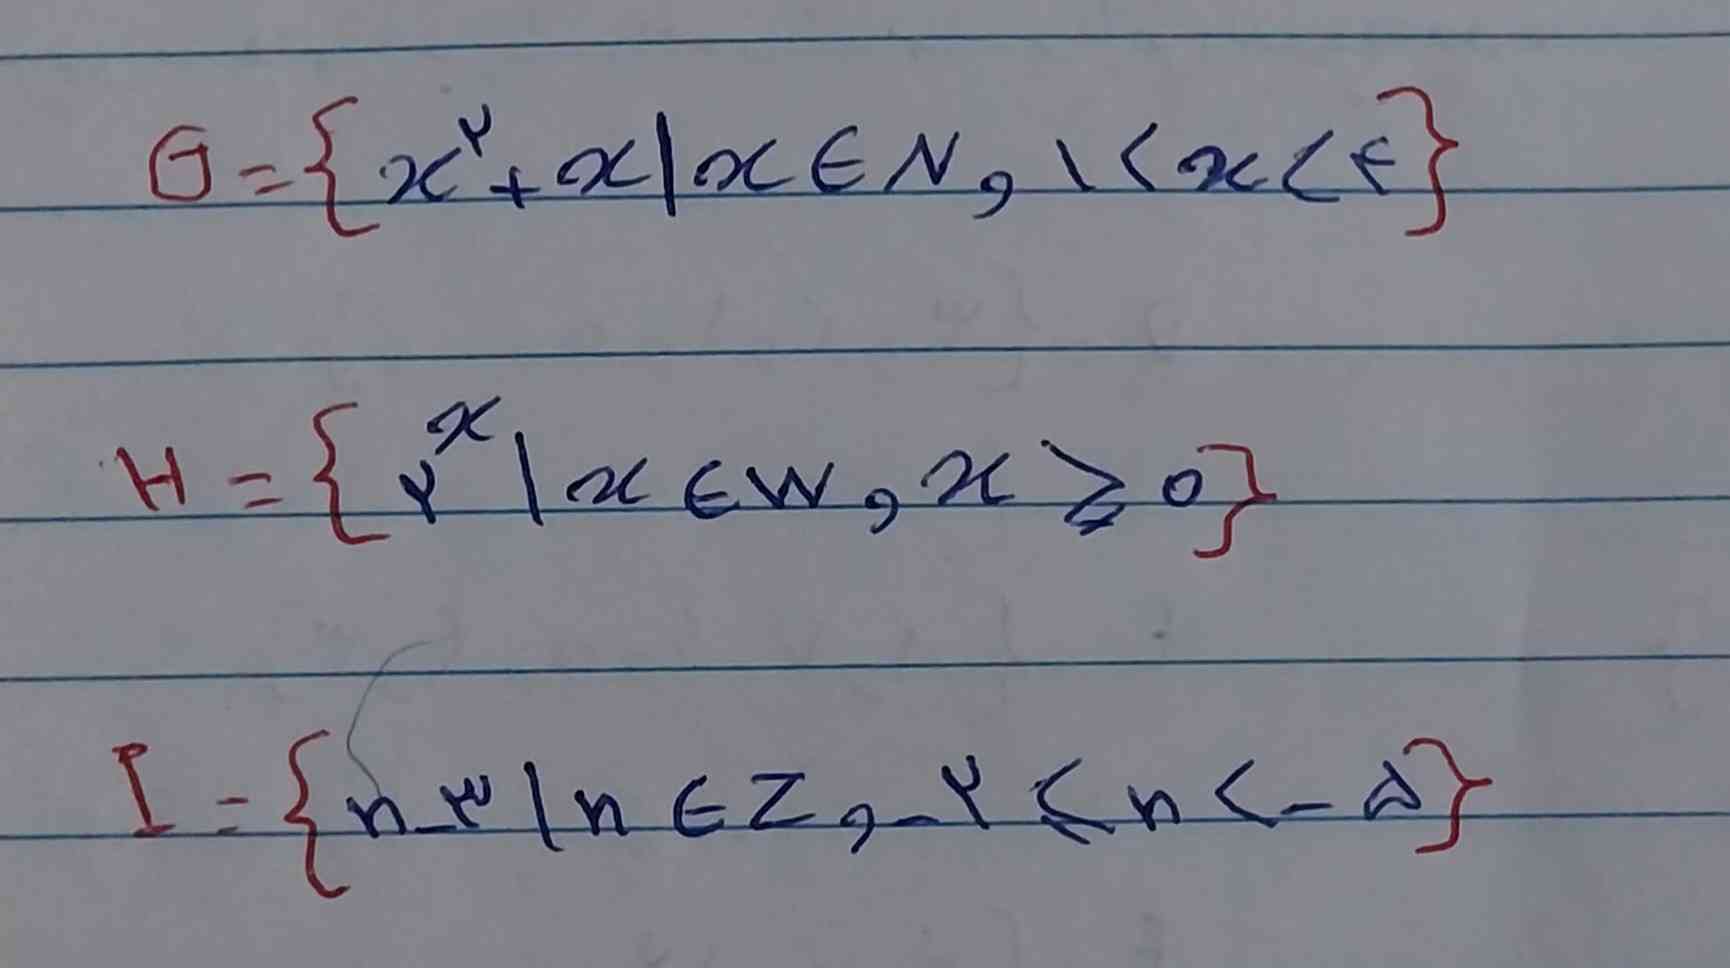 G = {x^۲ + x | x ∈ N , ۱ < x < ۴}
H = {۲^x | x ∈ W , x ⩾ ۰}
I = {n - ۳ | n ∈ Z , - ۲ ⩽ n < - ۵}